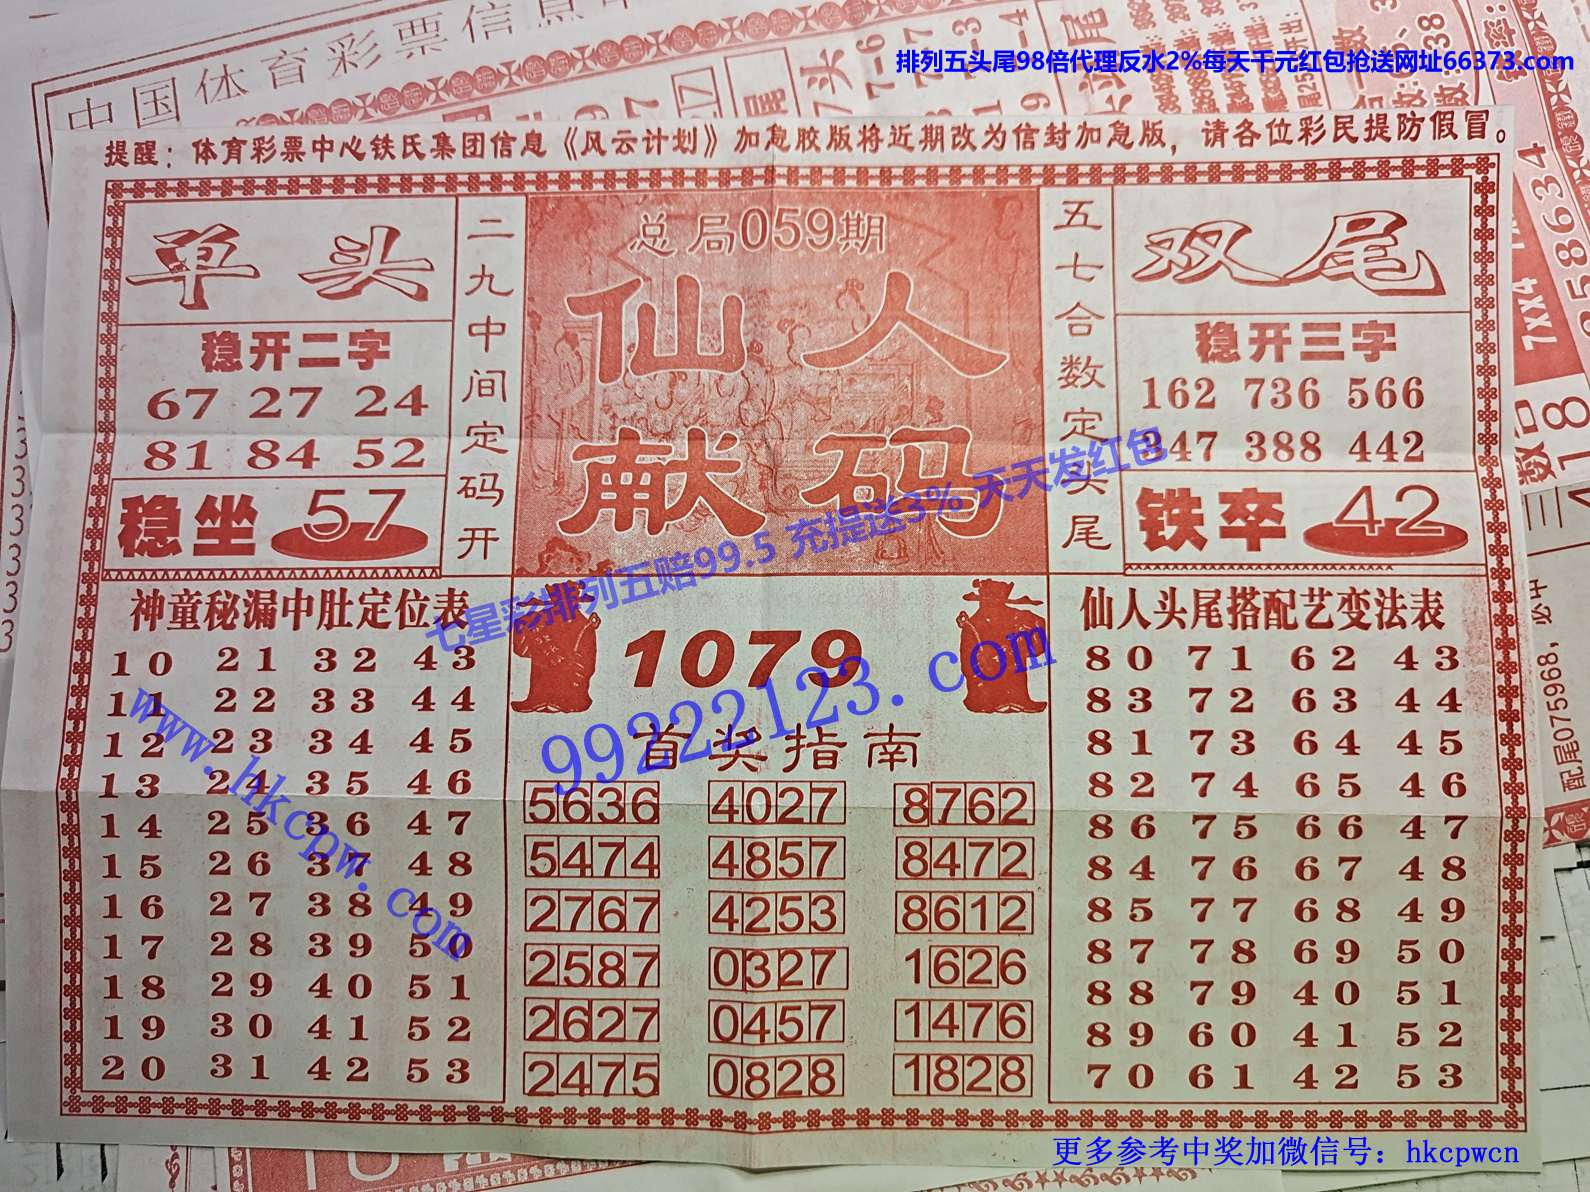 排列五头尾98倍代理反水2%每天千元红包抢送网址66373.com
中国体育彩票信息
提醒：体育彩票中心铁氏集团信息《风云计划》加急胶版将近期改为信封加急版，请各位彩民提防假冒。
单头
稳开二字
67 27 24
81 84 52
稳坐 57
二九中间定码开
总局059期
仙人
献码
五七合数定头尾
双尾
稳开三字
162 736 566
347 388 442
铁卒 42
七星彩排列五赔99.5 充提送3% 天天发红包
99222123.com
www.hkcpw.com
神童秘漏中肚定位表
10 21 32 43
11 22 33 44
12 23 34 45
13 24 35 46
14 25 36 47
15 26 37 48
16 27 38 49
17 28 39 50
18 29 40 51
19 30 41 52
20 31 42 53
1079
首奖指南
5636 4027 8762
5474 4857 8472
2767 4253 8612
2587 0327 1626
2627 0457 1476
2475 0828 1828
仙人头尾搭配艺变法表
80 71 62 43
83 72 63 44
81 73 64 45
82 74 65 46
86 75 66 47
84 76 67 48
85 77 68 49
87 78 69 50
88 79 40 51
89 60 41 52
70 61 42 53
7XX4
358634
配尾075968，必中
更多参考中奖加微信号：hkcpwcn